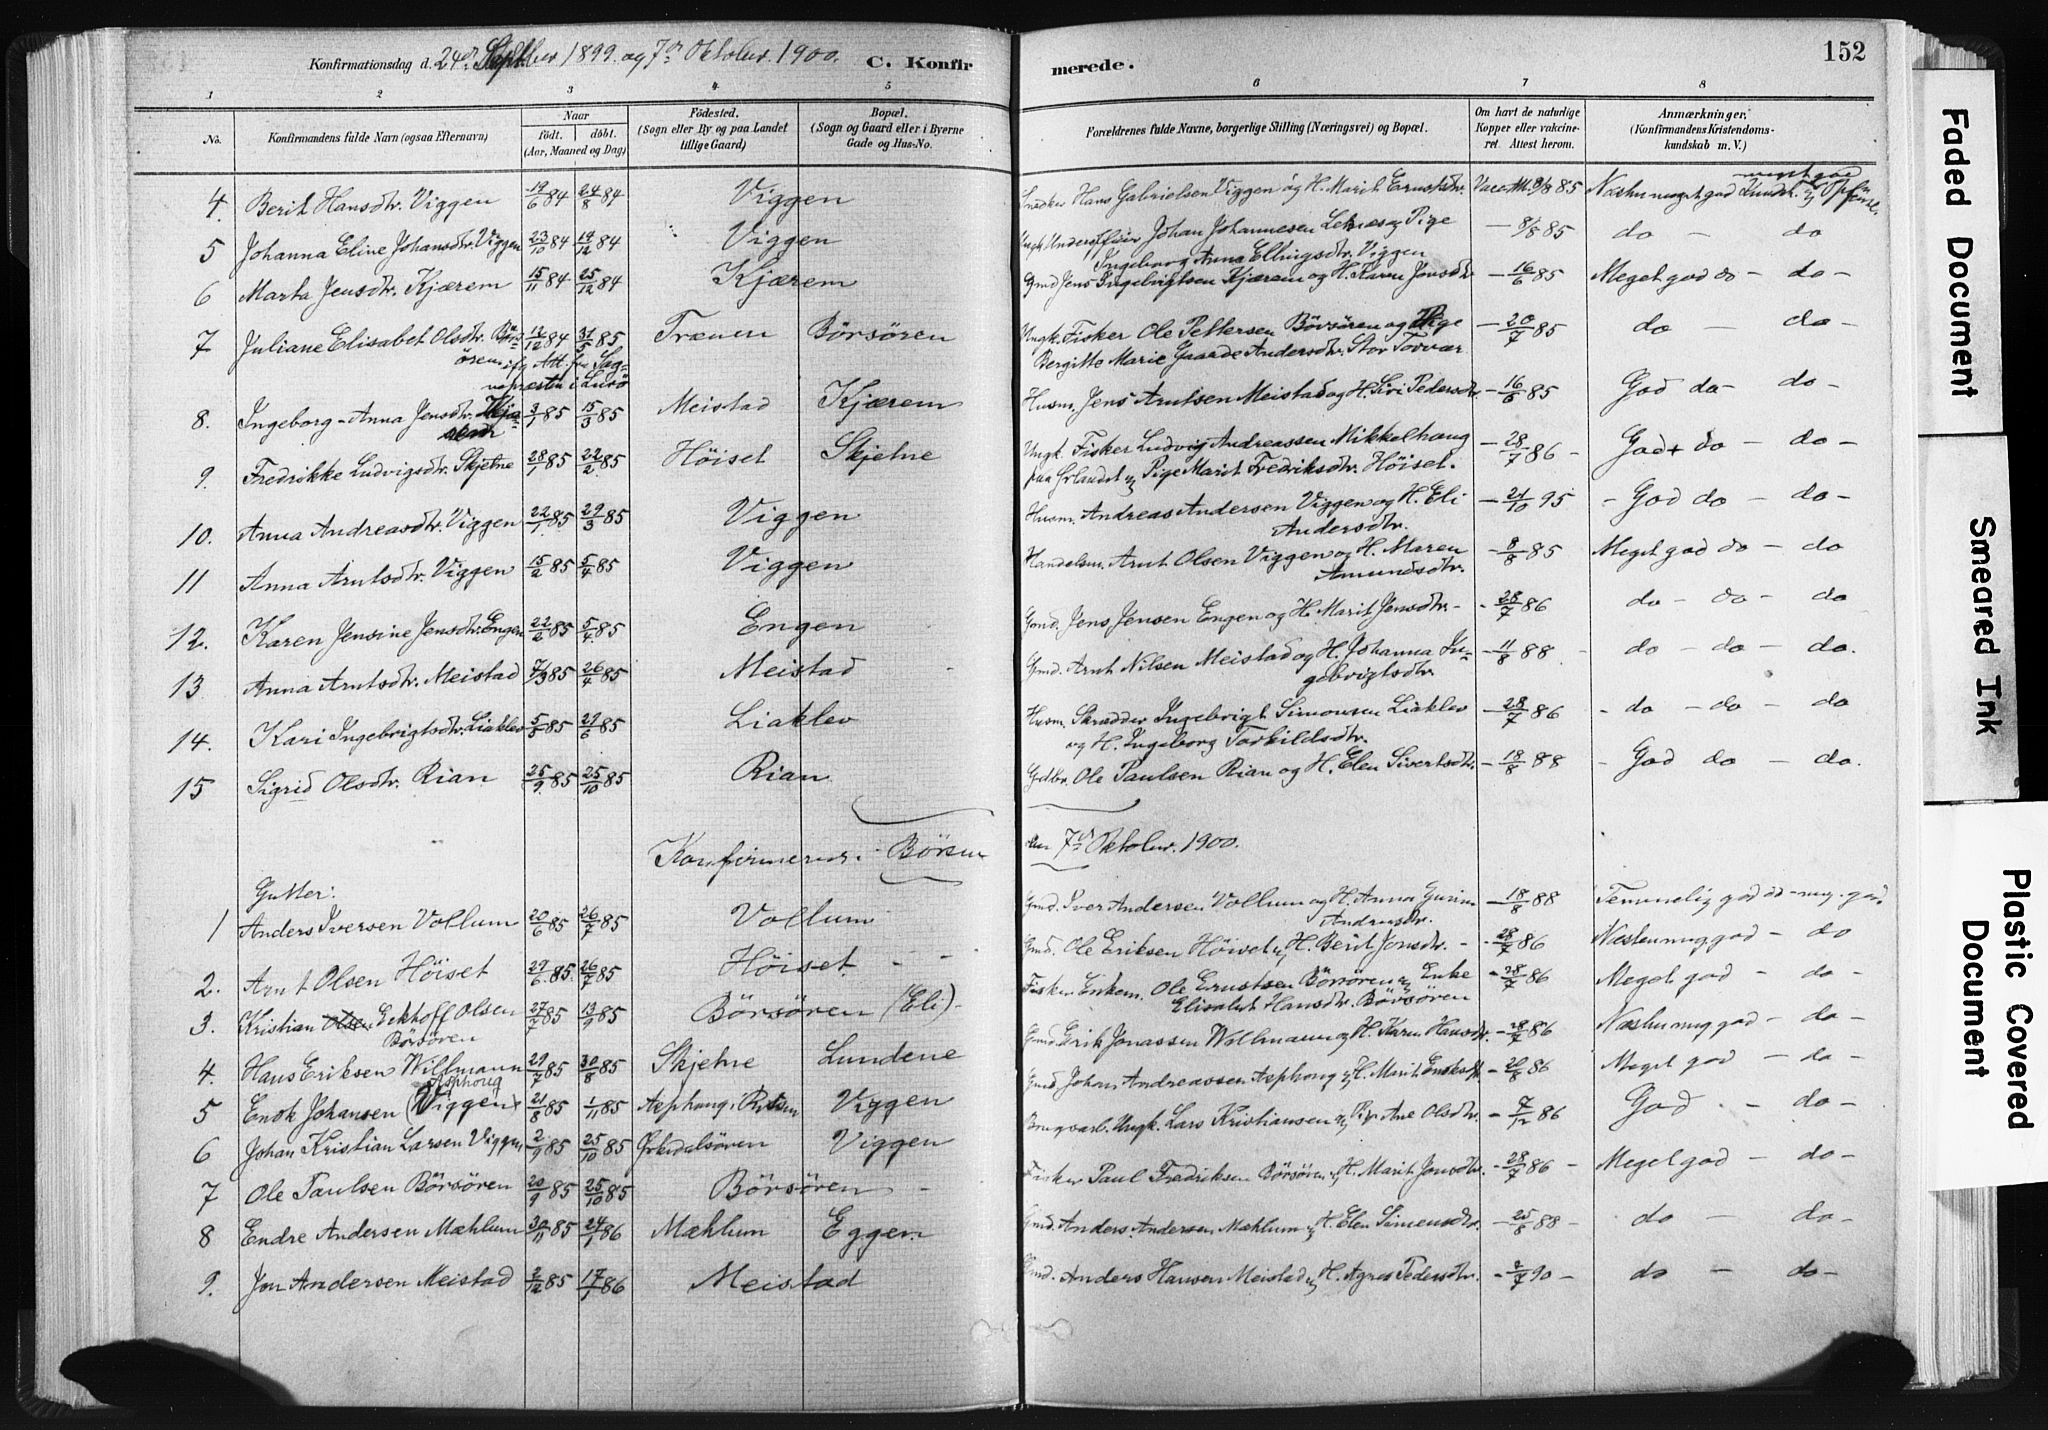 Konfirmationsdag d. 24de September 1899. og 7de Oktober 1900.
C. Konfirmerede.
152
1 2 3 4 5 6 7 8
No.
Konfirmandens fulde Navn (ogsaa Efternavn)
Naar
født. døbt.
(Aar, Maaned og Dag)
Fødested.
(Sogn eller By og paa Landet
tillige Gaard)
Bopæl.
(Sogn og Gaard eller i Byerne
Gade og Hus-No.
Forældrenes fulde Navne, borgerlige Stilling (Næringsvei) og Bopæl.
Om havt de naturlige
Kopper eller vakcine-
ret. Attest herom.
Anmærkninger,
(Konfirmandens Kristendoms-
kundskab m. V.)
4. Berit Hansdtr. Viggen 19/6 84 24/8 84 Viggen Snedker Hans Gabrielsen Viggen og H. Marit Ernstsdtr. Vacc. Att. 8/8 85 Næsten meget god Kundsk.
5 Johanna Eline Johansdtr. Viggen 23/10 84 19/12 84 Viggen Ungk. Underofficer Johan Johannesen Leknes og Pige
Ingeborg Anna Ellingsdtr. Viggen — 8/8 85 do — do
6 Marta Jensdtr. Kjærem 15/11 84 25/12 84 Kjærem Gmd Jens Ingebrigtsen Kjærem og H. Karen Jonsdtr — 16/6 85 Meget god do — do —
7 Juliane Elisabet Olsdtr. Børs-
ören ifg Att. fra Sog-
nepresten i Lurö 12/12 84 31/5 85 Trænen Börsören Ungk. Fisker Ole Pettersen Börsören og Pige
Bergitte Marie Gaarde Andersdtr. Stor Torvær — 20/7 85 do — do —
8. Ingeborg-Anna Jensdtr. Kjæ-
rem 3/1 85 15/3 85 Meistad Kjærem Husm. Jens Arntsen Meistad og H. Siri Pedersdtr. — 16/6 85 God do — do —
9. Fredrikke Ludvigsdtr. Skjetne 28/1 85 22/2 85 Höiset Skjetne Ungk. Fisker Ludvig Andreassen Mikkelhaug
paa Ørlandet og Pige Marit Fredriksdtr. Höiset. — 28/7 86 — God + do — do —
10. Anna Andreasdtr. Viggen 22/1 85 29/3 85 Viggen Husm. Andreas Andersen Viggen og H. Eli
Andersdtr. — 21/10 95 - God do — do —
11 Anna Arntsdtr. Viggen 15/2 85 5/4 85 Viggen Handelsm. Arnt Olsen Viggen og H. Maren
Amundsdtr. — 8/8 85 Meget god do — do
12. Karen Jensine Jensdtr. Engen 22/2 85 5/4 85 Engen Gmd. Jens Jensen Engen og H. Marit Jensdtr. — 28/7 86 do — do — do
13 Anna Arntsdtr. Meistad 7/3 85 26/4 85 Meistad Gmd. Arnt Nilsen Meistad og H. Johanna In-
gebrigtsdtr. — 11/8 88 do — do — do.
14. Kari Ingebrigtsdtr. Liaklev 5/5 85 29/6 85 Liaklev Husm. Skrædder Ingebrigt Simonsen Liaklev
og H. Ingeborg Torkildsdtr. — 28/7 86 - do — do — do
15 Sigrid Olsdtr. Rian 25/9 85 25/10 85 Rian Gdbr. Ole Paulsen Rian og H. Elen Sivertsdtr. — 18/8 88 - God do — do.
Konfirmerede i Börsen den 7de Oktober. 1900.
Gutter:
1 Anders Iversen Vollum 20/6 85 26/7 85 Vollum Gmd. Iver Andersen Vollum og H. Anna Gurine
Andersdtr. — 18/8 88 Temmelig god do - meg. god
2. Arnt Olsen Höiset 29/6 85. 26/7 85 Höiset Gmd. Ole Eriksen Höiset og H. Berit Jonsdtr. — 28/7 86 Næsten meg god — do
3. Kristian Eckhoff Olsen
Börsören 27/7 85 13/9 85 Börsören (Eli) Fisker Enkem. Ole Ernstsen Börsören og Enke
Elisabet Hansdtr. Börsören — 28/7 86 Meget god — do —
4. Hans Eriksen Willmann 29/7 85 30/8 85 Skjetne Lundene Gmd. Erik Jonassen Willmann og H. Karen Hansdtr. — 28/7 86 Næsten meg god — do —
5 Enok Johansen Asphoug (Viggen) 21/8 85 1/11 85 Asphoug i Rissen Viggen Gmd. Johan Andreassen Asphoug og H. Marit — 20/8 86 Meget god — do
6 Johan Kristian Larsen Viggen 2/9 85 25/10 85 Orkedalsören Viggen Brugsarb. Ungk. Lars Kristiansen og Pige Ane Olsdtr. — 7/12 86 God — do —
7 Ole Paulsen Börsören 20/9 85 25/10 85 Börsören Fisker Paul Fredriksen Börsören og H. Marit Jonsdtr. — 28/7 86 — Meget god — do —
8 Endre Andersen Mæhlum 30/11 85 24/1 86 Mæhlum Eggen Gmd. Anders Andersen Mæhlum og H. Elen Simensdtr. — 25/8 88 — do — do —
9. Jon Andersen Meistad 2/12 85 17/1 86 Meistad Gmd. Anders Hansen Meistad og H. Agnes Pedersdtr. — 2/7 90 — do — do —
Faded Document
Smeared Ink
Plastic Covered
Document